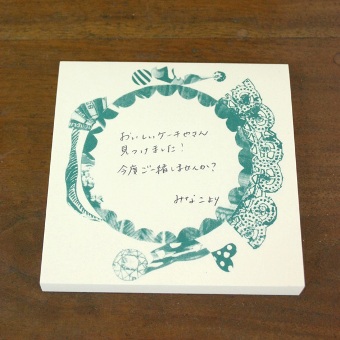 おいしいケーキやさん
見つけました!
今度ご一緒しませんか?
みなこより